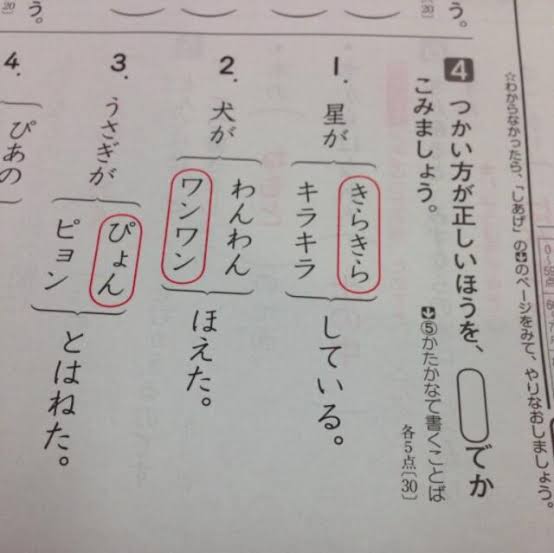 ☆わからなかったら、「しあげ」の⬇のページをみて、やりなおしましょう。
4 つかい方が正しいほうを、 でか
こみましょう。
⬇⑤かたかなで書くことば
各5点〔30〕
1. 星が
きらきら
キラキラ
している。
2. 犬が
わんわん
ワンワン
ほえた。
3. うさぎが
ぴょん
ピョン
とはねた。
4.
ぴあの
う。
〔20〕
う。